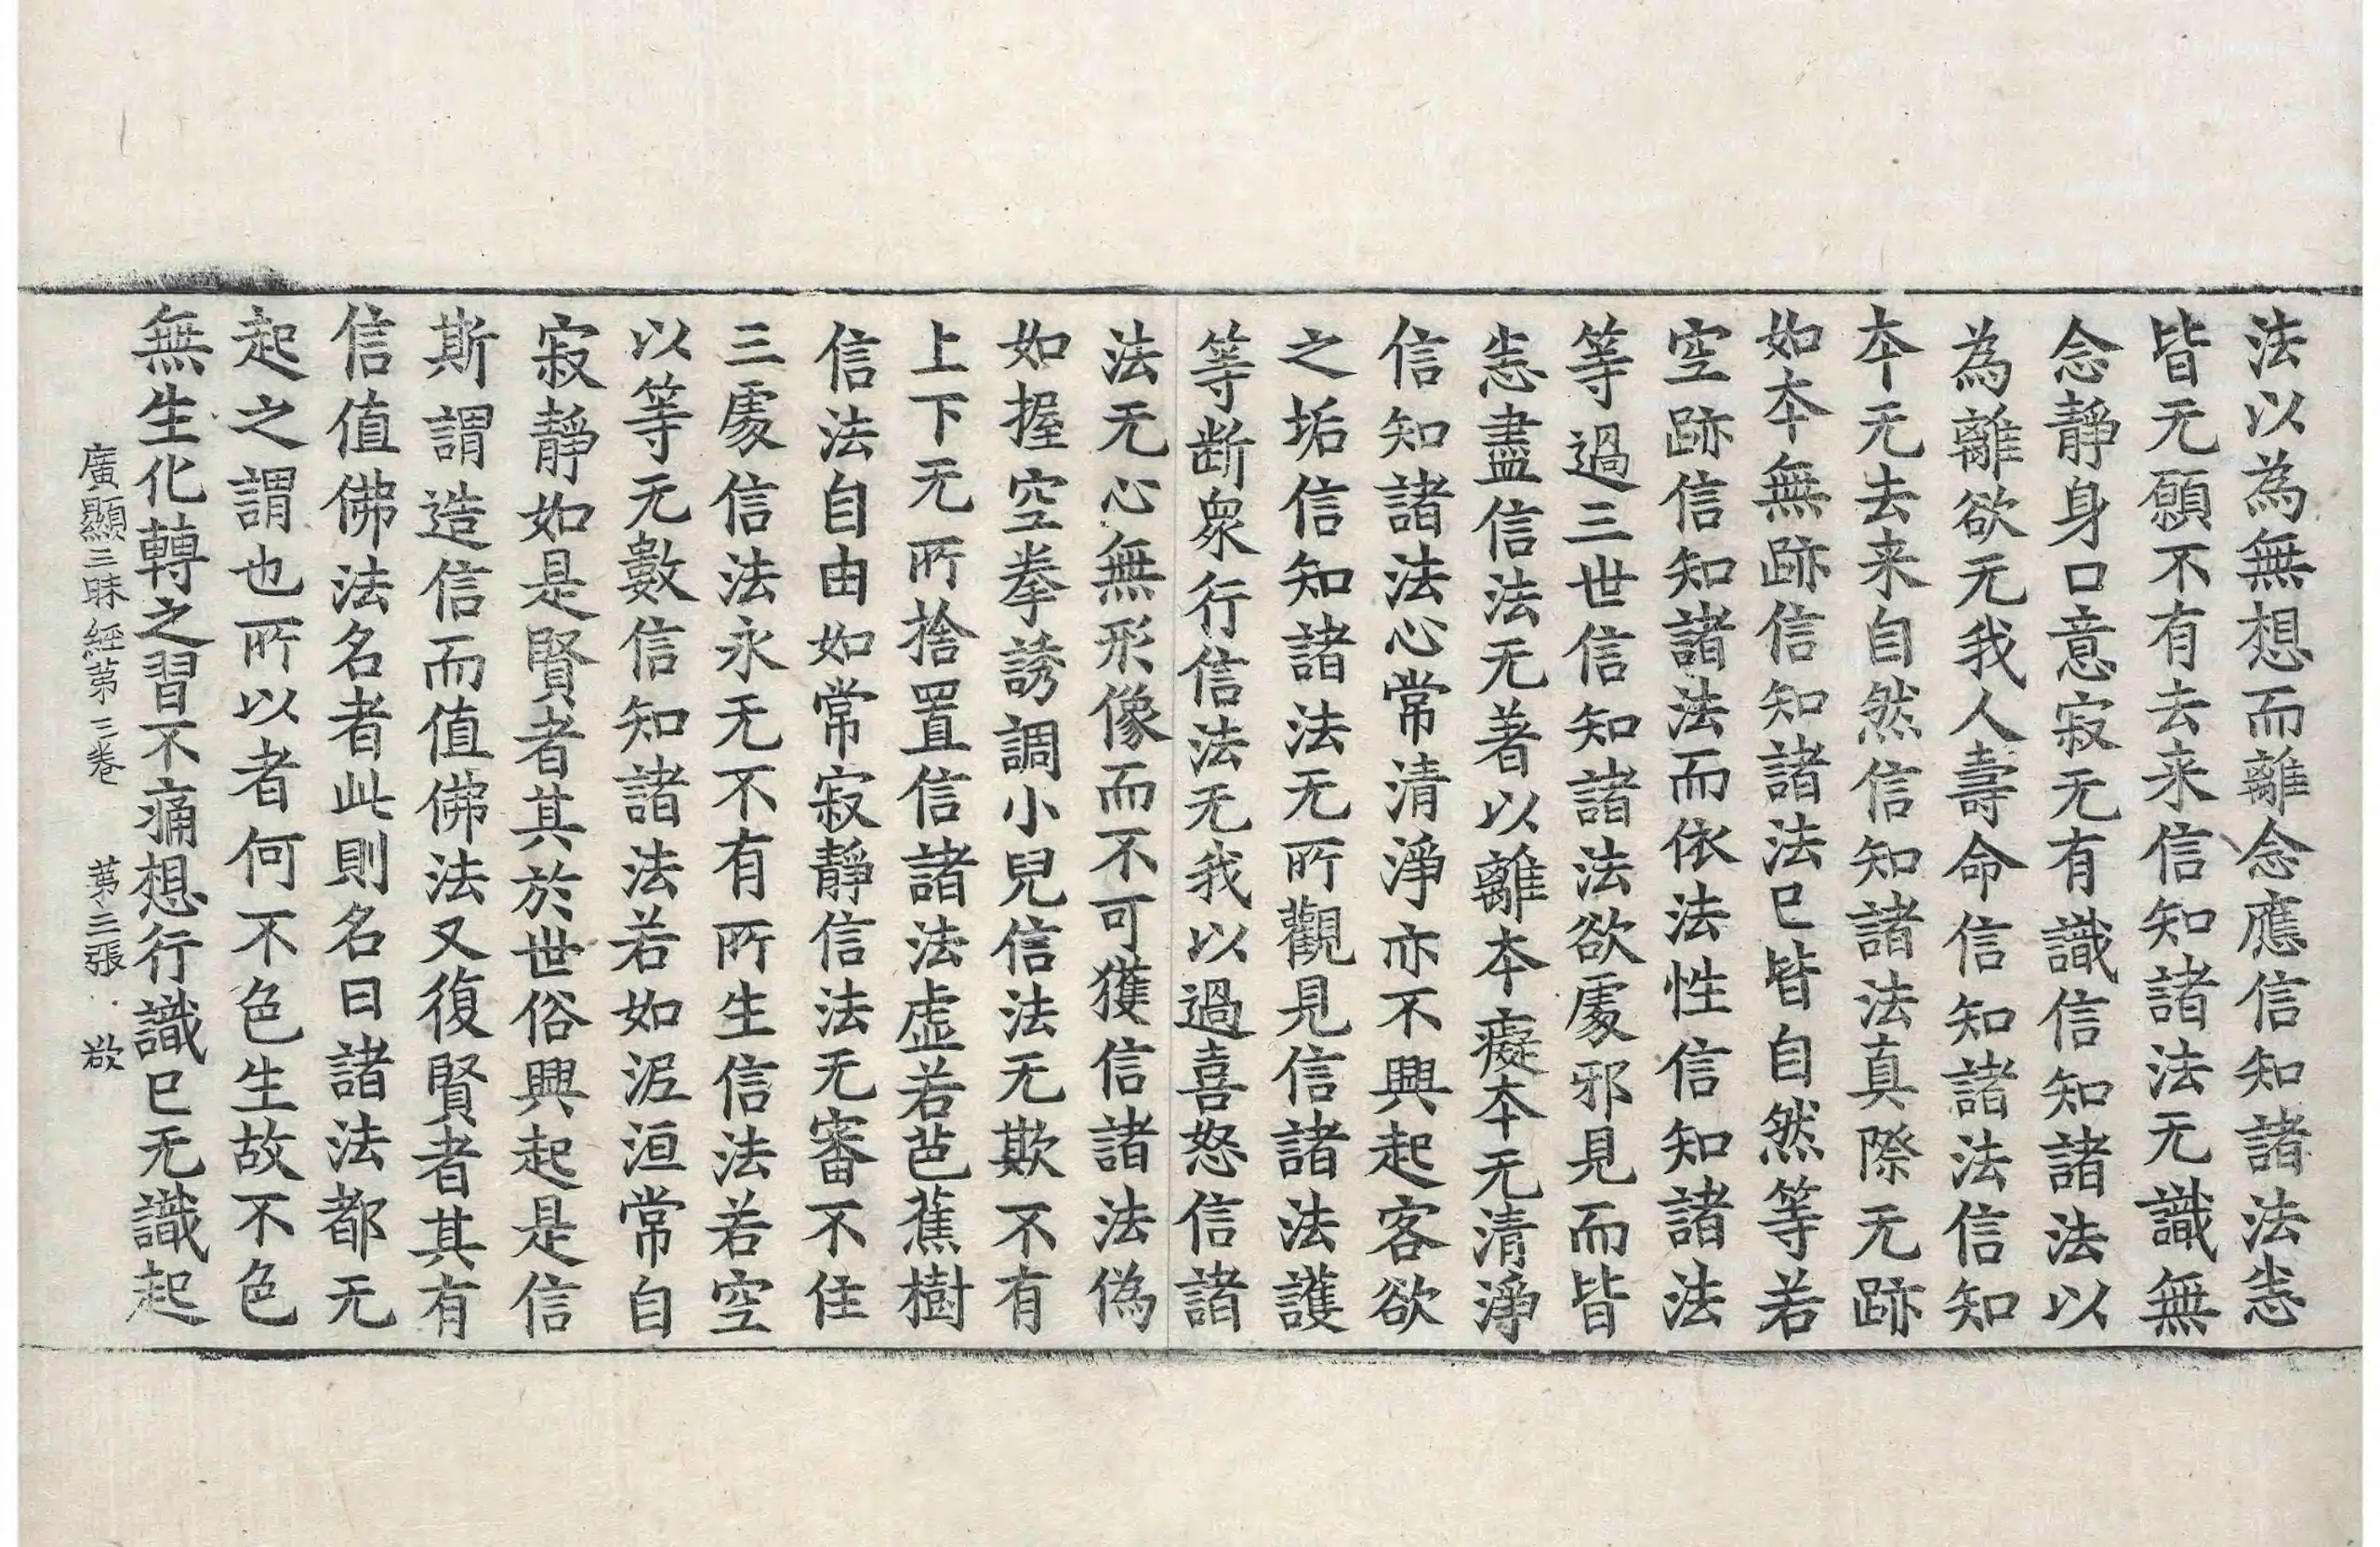 法以為無想而離念應信知諸法恚
皆无願不有去来信知諸法无識無
念靜身口意寂无有識信知諸法以
為離欲无我人壽命信知諸法信知
本无去来自然信知諸法真際无跡
如本無跡信知諸法已皆自然等若
空跡信知諸法而依法性信知諸法
等過三世信知諸法欲處邪見而皆
恚盡信法无著以離本癡本无清淨
信知諸法心常清淨亦不興起客欲
之垢信知諸法无所觀見信諸法護
等断衆行信法无我以過喜怒信諸
法无心無形像而不可獲信諸法偽
如握空拳誘調小兒信法无欺不有
上下无所捨置信諸法虛若芭蕉樹
信法自由如常寂靜信法无審不住
三處信法永无不有所生信法若空
以等无數信知諸法若如泥洹常自
寂靜如是賢者其於世俗興起是信
斯謂造信而值佛法又復賢者其有
信值佛法名者此則名曰諸法都无
起之謂也所以者何不色生故不色
無生化轉之習不痛想行識已无識起
廣顯三昧經第三卷 第三張 欲